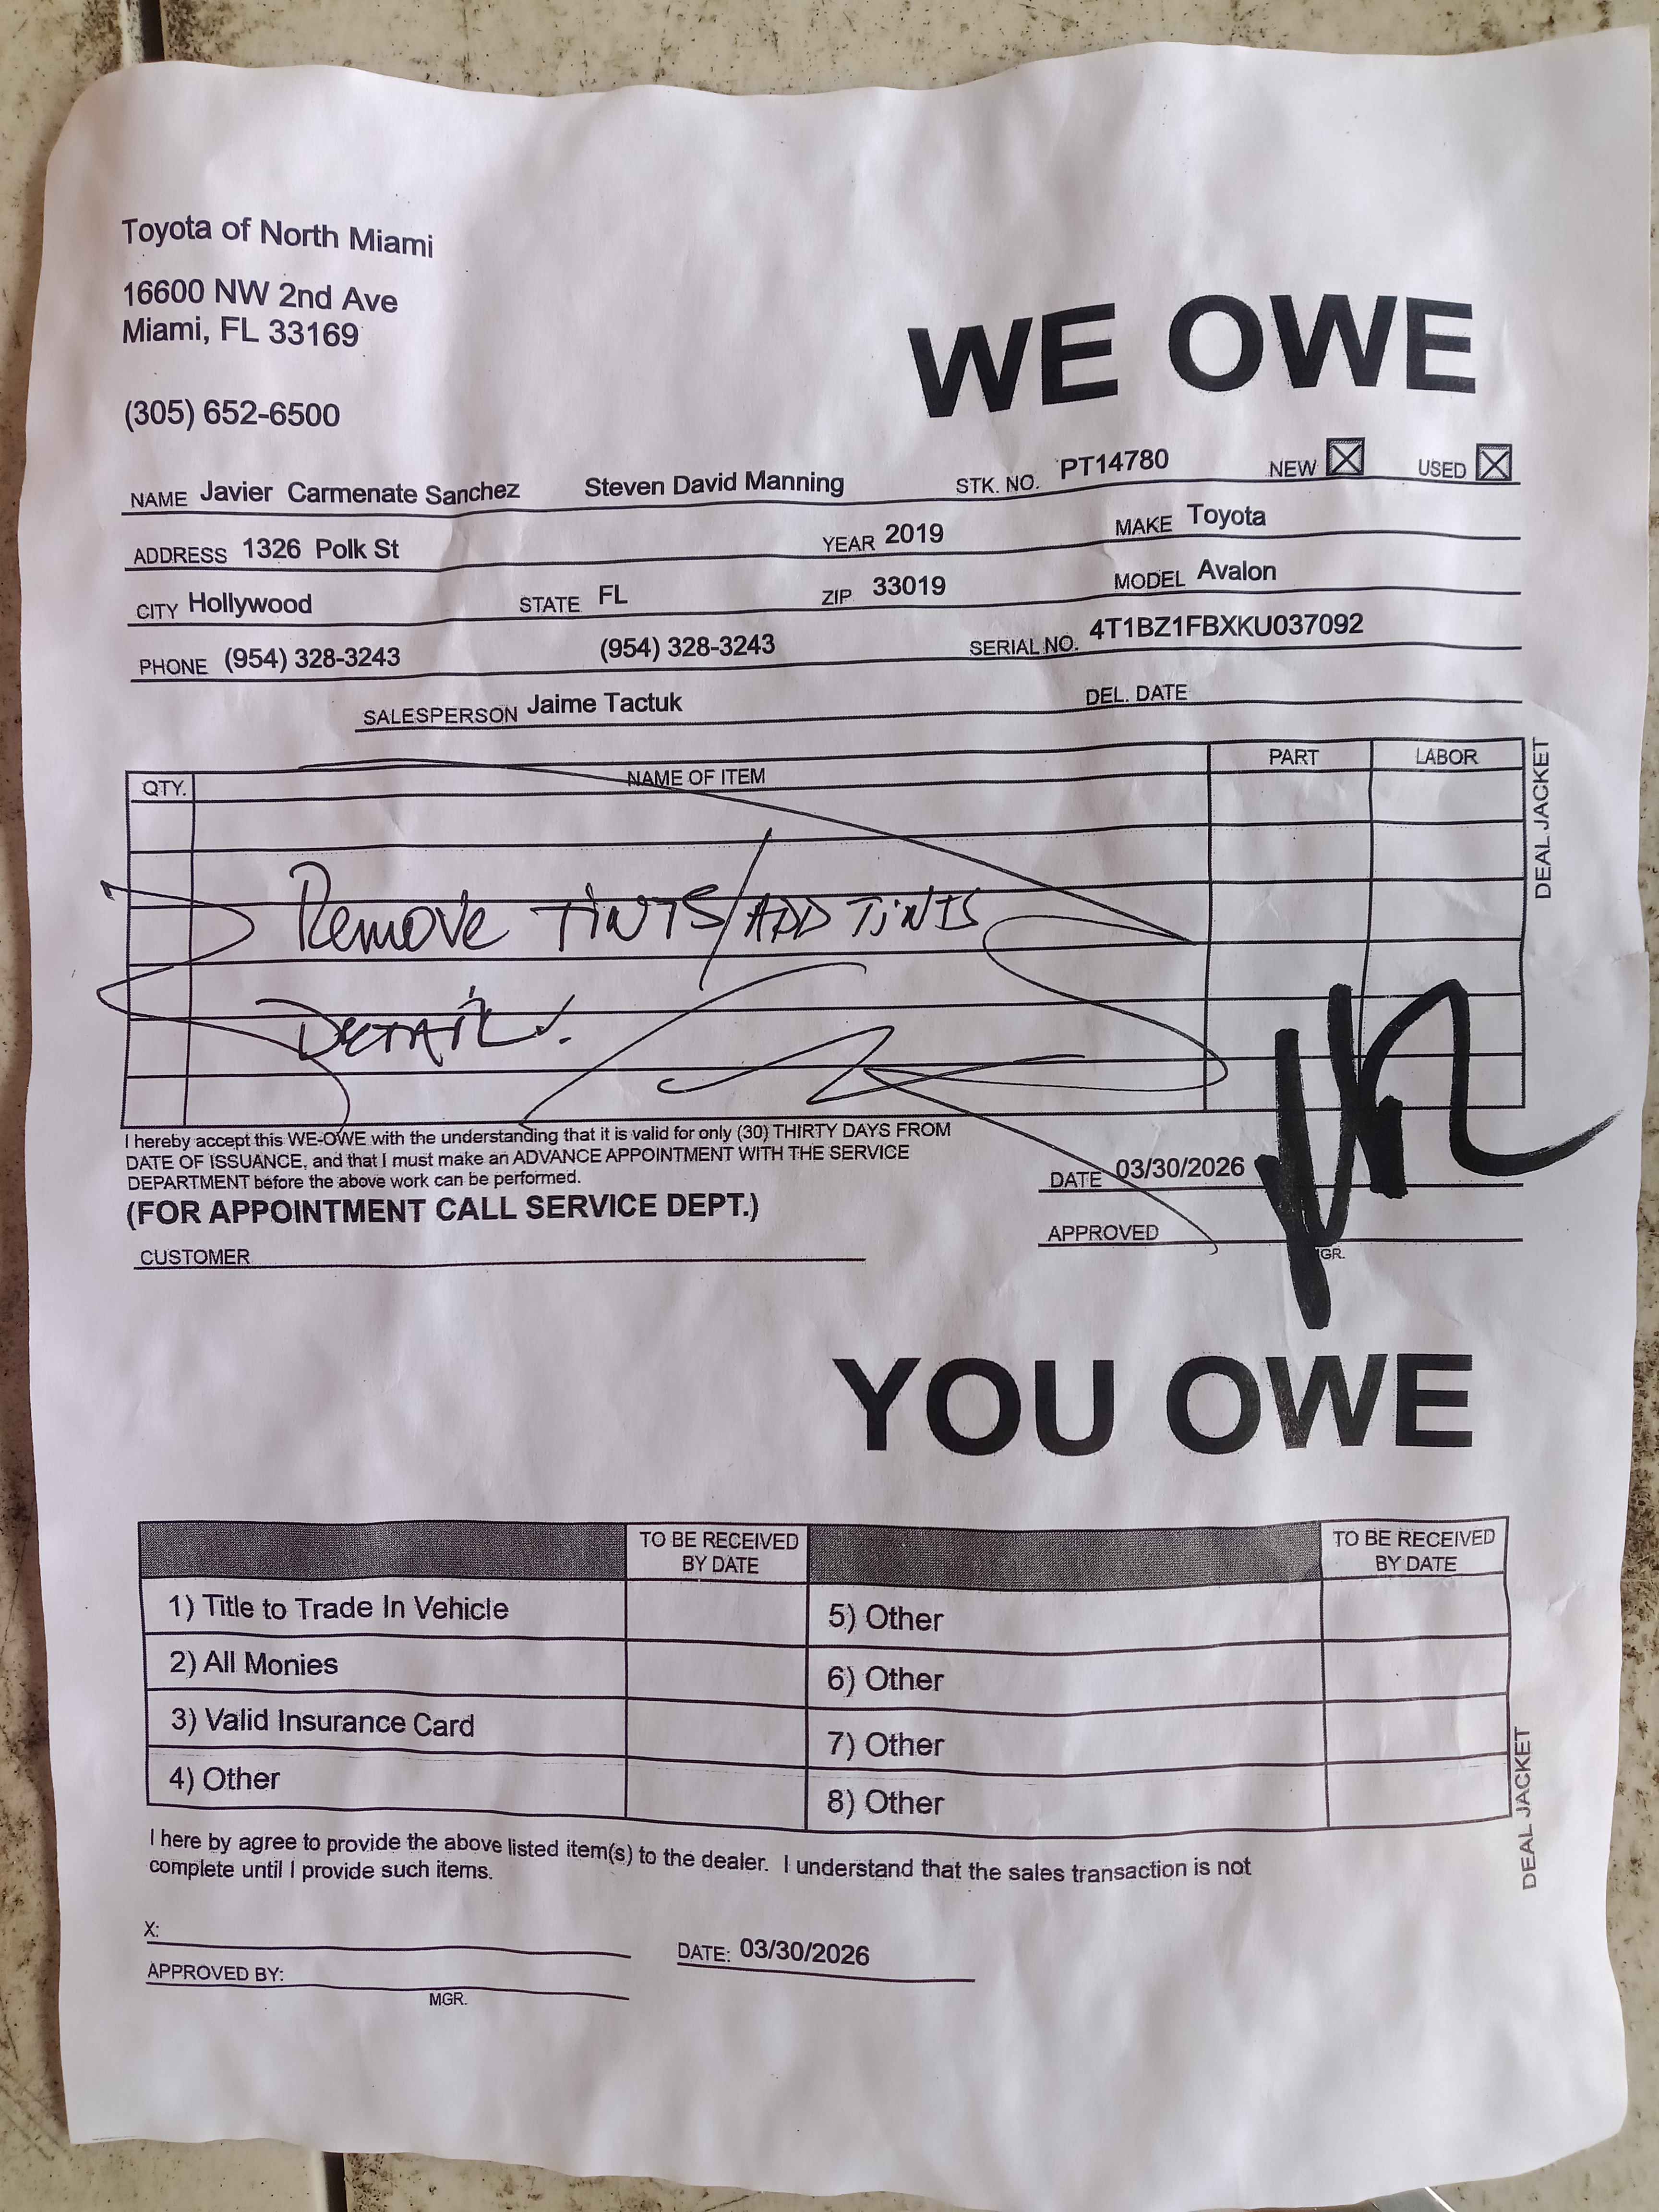 Toyota of North Miami
16600 NW 2nd Ave
Miami, FL 33169
(305) 652-6500
WE OWE
NAME Javier Carmenate Sanchez Steven David Manning STK. NO. PT14780 NEW USED
ADDRESS 1326 Polk St YEAR 2019 MAKE Toyota
CITY Hollywood STATE FL ZIP 33019 MODEL Avalon
PHONE (954) 328-3243 (954) 328-3243 SERIAL NO. 4T1BZ1FBXKU037092
SALESPERSON Jaime Tactuk DEL. DATE
QTY. NAME OF ITEM PART LABOR
Remove TiNTS/ADD TiNTS
DETAiL.
DEAL JACKET
I hereby accept this WE-OWE with the understanding that it is valid for only (30) THIRTY DAYS FROM
DATE OF ISSUANCE, and that I must make an ADVANCE APPOINTMENT WITH THE SERVICE
DEPARTMENT before the above work can be performed.
(FOR APPOINTMENT CALL SERVICE DEPT.)
DATE 03/30/2026
CUSTOMER
APPROVED
GR.
YOU OWE
TO BE RECEIVED BY DATE TO BE RECEIVED BY DATE
1) Title to Trade In Vehicle 5) Other
2) All Monies 6) Other
3) Valid Insurance Card 7) Other
4) Other 8) Other
DEAL JACKET
I here by agree to provide the above listed item(s) to the dealer. I understand that the sales transaction is not
complete until I provide such items.
X:
DATE: 03/30/2026
APPROVED BY:
MGR.